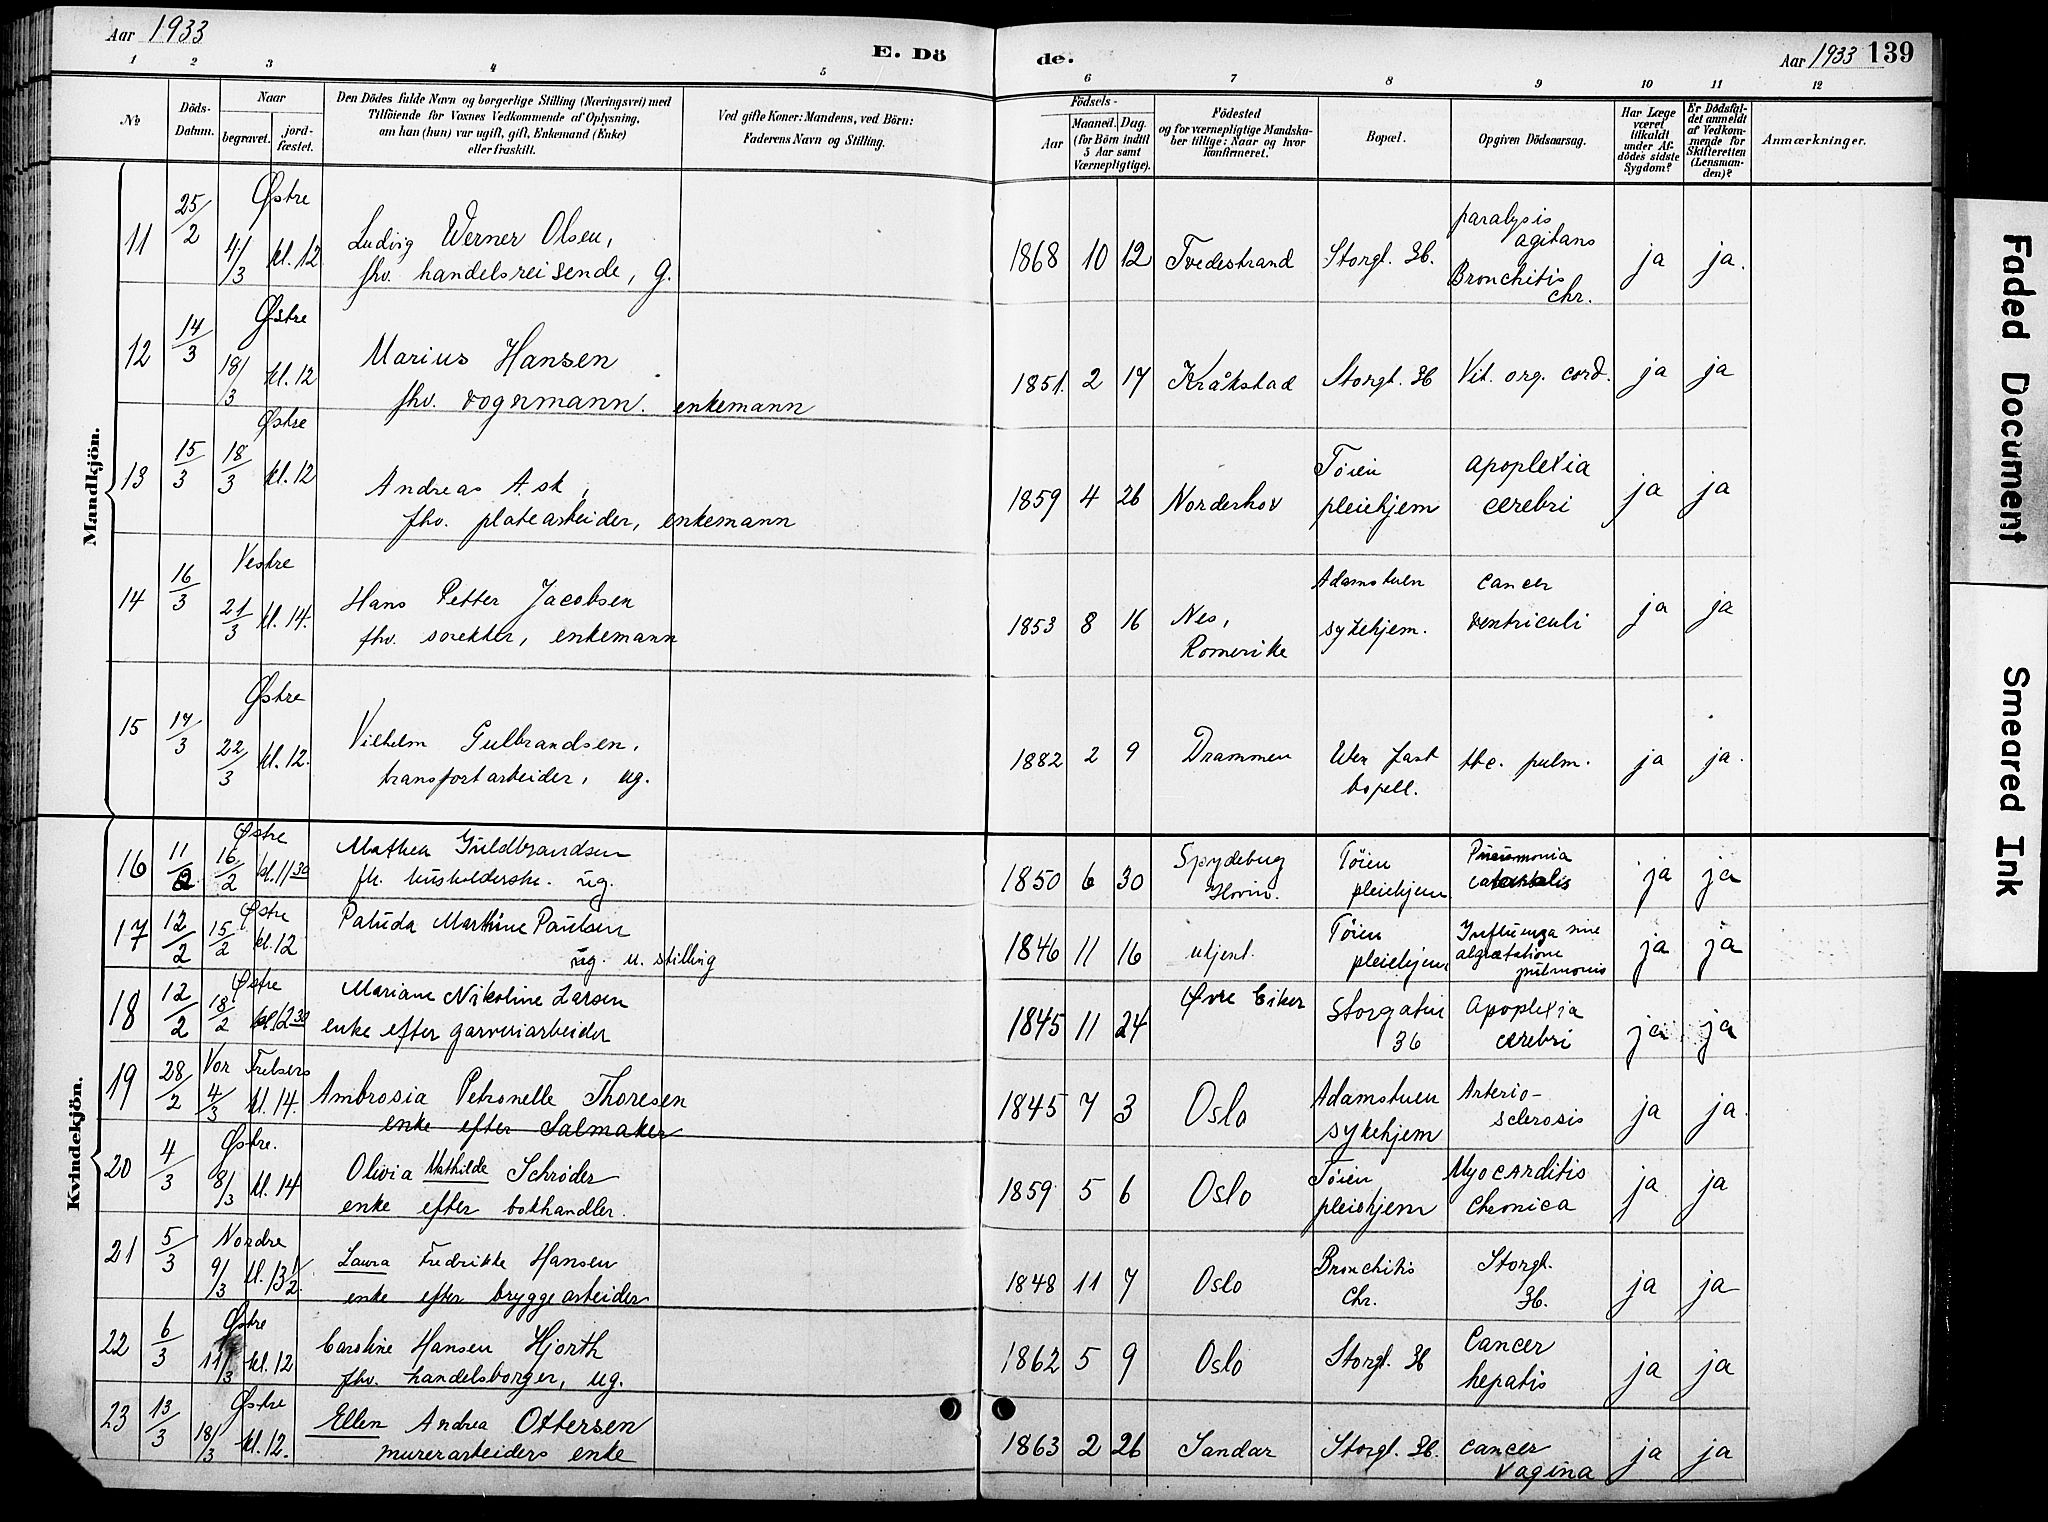 Aar 1933
E. Dö
de.
Aar 1933 139
1 2 3 4 5 6 7 8 9 10 11 12
No
Döds-
Datum.
Naar
begravet.
jord-
fæstet.
Den Dödes fulde Navn og borgerlige Stilling (Næringsvei) med
Tilföiende for Voxnes Vedkommende af Oplysning,
om han (hun) var ugift, gift, Enkemand (Enke)
eller fraskilt.
Ved gifte Koner: Mandens, ved Börn:
Faderens Navn og Stilling.
Födsels-
Aar
Maaned. Dag.
(for Börn indtil
5 Aar samt
Værnepligtige).
Födested
og for værnepligtige Mandska-
ber tillige: Naar og hvor
konfirmeret.
Bopæl.
Opgiven Dödsaarsag.
Har Læge
været
tilkaldt
under Af-
dödes sidste
Sygdom?
Er Dödsfal-
det anmeldt
af Vedkom-
mende for
Skifteretten
(Lensman-
den)?
Anmærkninger.
Mandkjön.
11 25/2 Østre 4/3 kl. 12
Ludvig Werner Olsen,
fhv. handelsreisende, g.
1868 10 12 Tvedestrand Storgt. 36.
paralysis
agitans
Bronchitis
chr.
ja ja.
12 14/3 Østre 18/3 kl. 12
Marius Hansen
fhv. vognmann. enkemann
1851. 2 17 Kråkstad Storgt. 36 Vit. org. cord. ja ja
13 15/3 Østre 18/3 kl. 12
Andreas Ask,
fhv. platearbeider, enkemann
1859 4 26 Norderhov
Tøien
pleiehjem
apoplexia
cerebri
ja ja
14 16/3 Vestre 21/3 kl. 14.
Hans Petter Jacobsen
fhv. snekker, enkemann
1853 8 16
Nes,
Romerike
Adamstuen
sykehjem.
cancer
ventriculi
ja ja
15 17/3 Østre 22/3 kl. 12.
Vilhelm Gulbrandsen,
transportarbeider, ug.
1882 2 9 Drammen
Uten fast
bopell.
tbc. pulm. ja ja.
Kvindekjön.
16 11/2 Østre 16/2 kl. 11 30
Mathea Guldbrandsen
fh. husholderske. ug.
1850 6 30
Spydeberg
Hovin.
Tøien
pleiehjem
Pneumonia
ja ja
17 12/2 Østre 15/2 kl. 12
Paluda Marthine Paulsen
ug. u. stilling
1846 11 16 ukjent.
Tøien
pleiehjem
Influenza
pulmonis
ja ja
18 12/2 Østre 18/2 kl 12 30
Mariane Nikoline Larsen
enke efter garveriarbeider
1845 11 24 Øvre Eiker
Storgaten
36
Apoplexia
cerebri
ja ja
19 28/2 Vor Frelsers 4/3 kl. 14.
Ambrosia Petronelle Thoresen
enke efter Salmaker
1845 7 3 Oslo
Adamstuen
sykehjem
Arterio-
sclerosis
ja ja
20 4/3 Østre. 8/3 kl. 14
Olivia Mathilde Schrøder
enke efter bokhandler.
1859 5 6 Oslo
Tøien
pleiehjem
Myocarditis
Chronica
ja ja
21 5/3 Nordre 9/3 kl. 13 1/2.
Laura Fredrikke Hansen
enke efter bryggearbeider
1848 11 7 Oslo
Bronchitis
Chr.
Storgt.
36.
ja ja
22 6/3 Østre 11/3 kl. 12
Caroline Hansen Hjorth
fhv. handelsborger, ug.
1862 5 9 Oslo Storgt. 36
Cancer
hepatis
ja ja
23 13/3 Østre 18/3 kl. 12.
Ellen Andrea Ottersen
murerarbeiders enke
1863 2 26 Sandar Storgt. 36.
cancer
vagina
ja ja
Faded Document
Smeared Ink